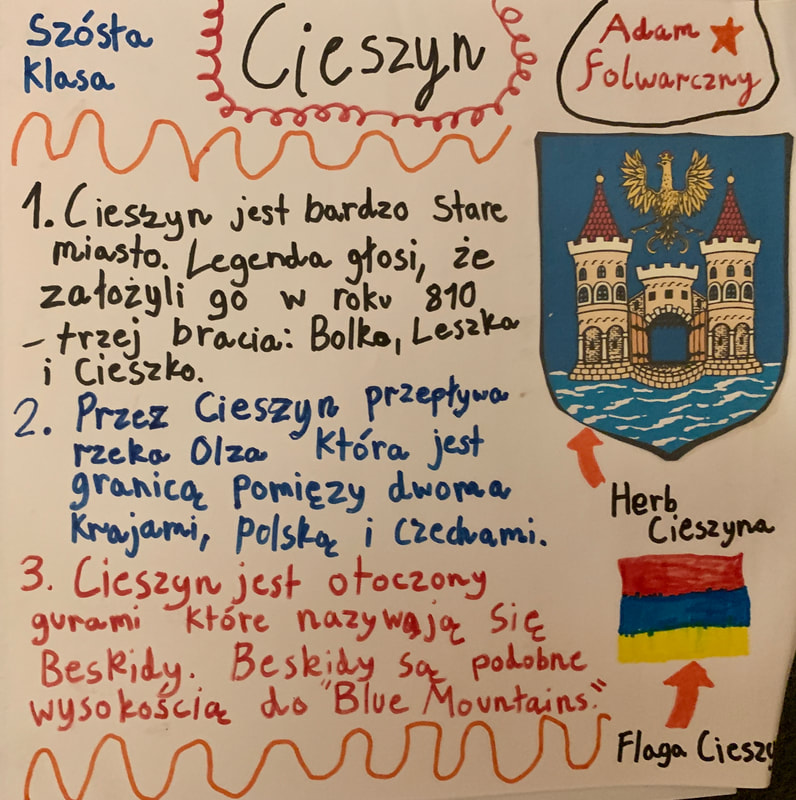 Szósta
Klasa
Cieszyn
Adam
Folwarczny
1. Cieszyn jest bardzo stare
miasto. Legenda głosi, że
założyli go w roku 810
– trzej bracia: Bolko, Leszka
i Cieszko.
2. Przez Cieszyn przepływa
rzeka Olza która jest
granicą pomięzy dwoma
krajami, Polską i Czechami.
3. Cieszyn jest otoczony
gurami które nazywają się
Beskidy. Beskidy są podobne
wysokością do "Blue Mountains."
Herb
Cieszyna
Flaga Cieszy